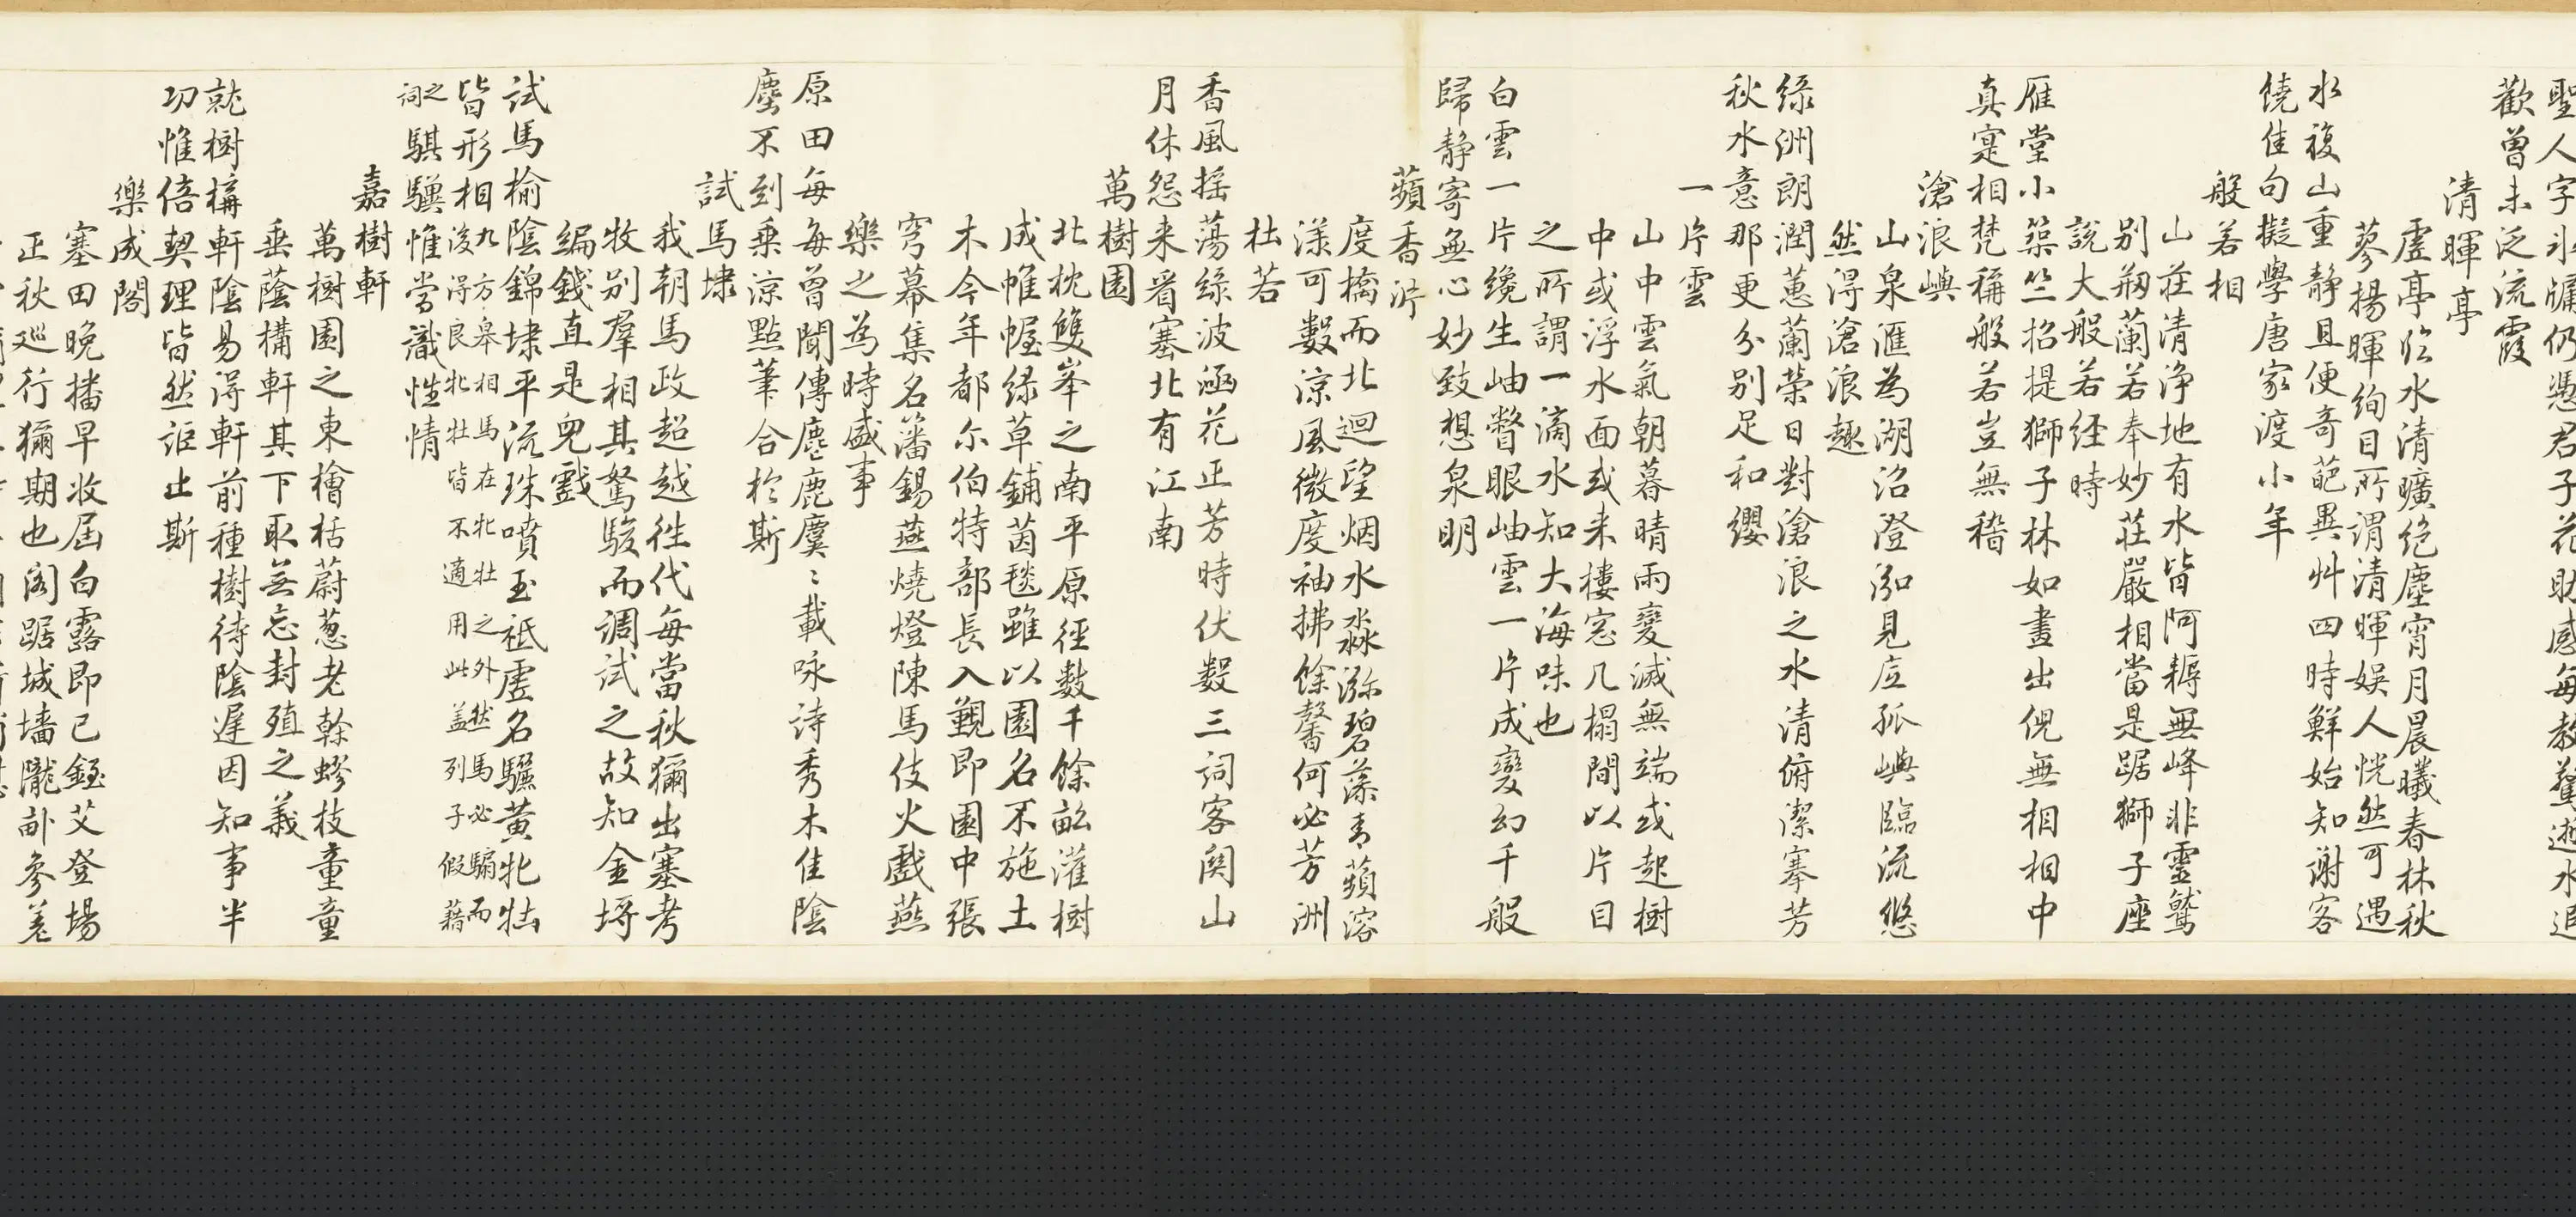 聖人字
歡曾未泛流霞
清暉亭
虛亭俯水清曠絕塵宵月晨曦春林秋
蓼揚暉絢目所謂清暉娛人恍然可遇
水複山重靜且便奇葩異艸四時鮮始知謝客
饒佳句擬學唐家渡小年
般若相
山莊清淨地有水皆阿耨無峰非靈鷲
別剏蘭若奉妙莊嚴相當是踞獅子座
說大般若經時
雁堂小築竺招提獅子林如畫出倪無相相中
真寔相梵稱般若豈無稽
滄浪嶼
山泉滙為湖沼澄泓見底孤嶼臨流悠
然得滄浪趣
綠洲朗潤蕙蘭榮日對滄浪之水清俯潔搴芳
秋水意那更分別足和纓
一片雲
山中雲氣朝暮晴雨變滅無端或起樹
中或浮水面或来樓窓几榻間以片目
之所謂一滴水知大海味也
白雲一片纔生岫瞥眼岫雲一片成變幻千般
歸靜寄無心妙致想泉明
蘋香沜
度橋而北迴望烟水淼瀰碧藻青蘋溶
漾可數涼風微度袖拂餘馨何必芳洲
杜若
香風搖蕩綠波涵花正芳時伏數三詞客関山
月休怨来看塞北有江南
萬樹園
北枕雙峯之南平原徑數千餘畝灌樹
成帷幄綠草鋪茵毯雖以園名不施土
木今年都尔伯特部長入覲即園中張
穹幕集名藩錫燕燒燈陳馬伎火戲燕
樂之為時盛事
原田每每曾聞傳麈鹿麌〻載咏詩秀木佳陰
塵不到乘涼點筆合於斯
試馬埭
我朝馬政超越徃代每當秋獮出塞考
牧別羣相其駑駿而調試之故知金埒
編錢直是兒戲
試馬榆陰錦埭平流珠噴玉祗虛名驪黃牝牡
皆形相九方皋相馬在牝牡之外然馬必騸而
後得良牝牡皆不適用此盖列子假藉
之詞騏驥惟當識性情
嘉樹軒
萬樹園之東檜栝蔚蔥老榦蟉枝童童
垂蔭構軒其下取無忘封殖之義
就樹構軒陰易得軒前種樹待陰遲因知事半
功惟倍契理皆然詎止斯
樂成閣
塞田晚播早收屆白露即已銍艾登場
正秋巡行獮期也閣踞城墻隴畝參差